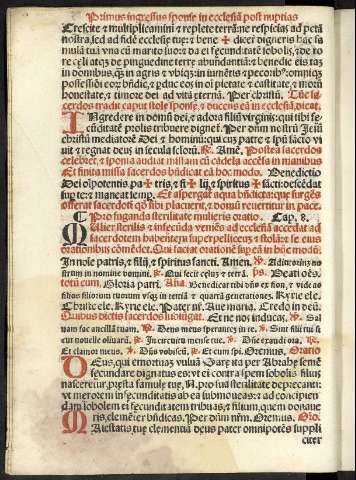 Primus ingressus sponse in ecclesiã post nuptias
Crescite & multiplicamini & replete terrã ne respicias ad petã
nostra sed ad fidẽ ecclesie tue: & bene ✠ dicere digneris
mulã tuã vna cũ marito quor da ei fecunditatẽ sobolis, & de ro
re celi atq; de pinguedine terre abundantiã: & benedic eis tas
in domibus, q̃; in agris & vbiq; in iumẽtis & pecorib9 omniq;
possessiõi eor bñdic, & duc eos in oi pietate & castitate, & mori
honestate, & timore dei ad vitã eternã. Per christũ. Tũc sa
cerdos tradit caput stole sponse, & ducens eã in ecclesiã, dicat.
INgredere in domũ dei, & adora filiũ virginis: qui tibi fe
cũditatẽ prolis tribuere dignet. Per dñm nostrũ Jesũ
christũ mediatorẽ Dei & hominũ: qui cũ patre & spũ sancto vi
uit & regnat deus in secula sclor. R. Amẽ. Postea sacerdos
celebret, & sponsa audiat missam cũ cãdela accẽsa in manibus
Et finita missa sacerdos bñdicat eã hoc modo. Benedictio
Dei oĩpotentis, pa ✠ tris, & fi ✠ lij, & spiritus ✠ sancti: descẽdat
sup te: & maneat semp. Et aspergat aqua bñdicta: que surgẽs
osserat sacerdoti quod sibi placuerit, & domũ reuertitur in pace.
Pro fuganda sterilitate mulieris oratio. Cap. 8.
MUlier sterilis & infecũda veniẽs ad ecclesiã accedat ad
sacerdotem habentem superpelliceum & stolã: se & eius
orationibus cõmẽdet. Qui faciat orationẽ sup eã in hũc modũ.
In noĩe patris, & filij, & spiritus sancti. Amen. Adiutoriũ no
strum in nomine domini. R. Qui fecit celum & terrã. ps. Beati oẽs.
totũ cum, Gloria patri. Aña. Benedicat tibi dñs ex sion, & vide as
filios filiorum tuorum vsq; in tertiã & quartã generationes. Kyrie ele.
Christe ele. Kyrie ele. Pater nr̃. Aue maria. Credo in deũ.
Quibus dictis sacerdos subiungat. Et ne nos inducas, V. Sal
uam fac ancillã tuam. Deus meus sperantes in te. V. Sint filij tui si
cut nouelle oliuarũ. R. In circuitu mense tue. V. Dñe exaudi orã.
Et clamor meus. V. Dñs vobiscũ. R. Et cum spi. Oremus. Oratio
DEus, qui emortuã vuluã Saray ita per Abrahẽ semẽ
fecundare dignatus es: vt ei contra spem sobolis filius
nasceretur, presta famule tue, N. pro sua sterilitate deprecanti:
vt meroem in fecunditatis ab ea submoueas: & ad concipien
dam sobolem ei fecunditatem tribuas; & filium, quem donaue
ris, clementer bñdicas. Per dñm nr̃m. Oremus. Oro.
MAiestatis tue clementiã deus pater omnipotẽs suppli
citer